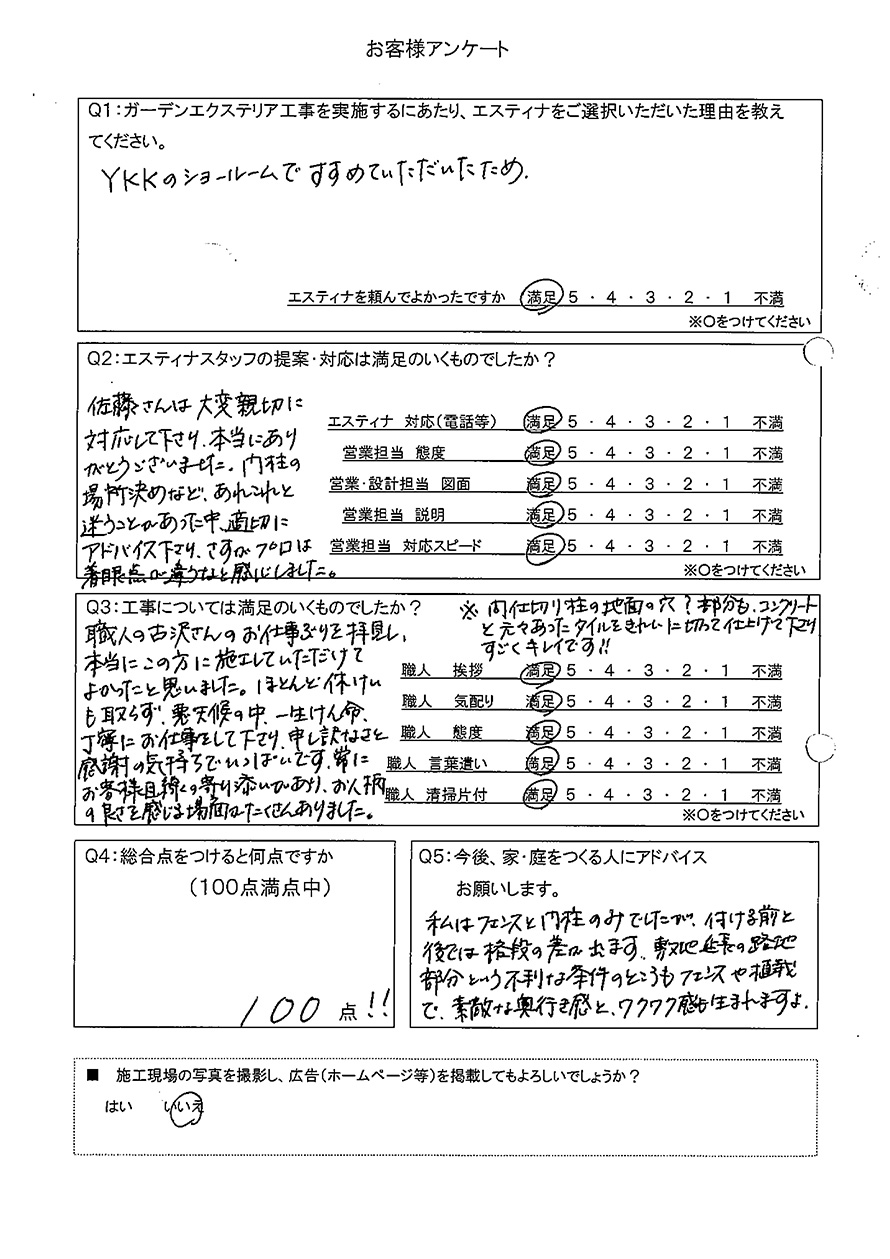 お客様アンケート
Q1:ガーデンエクステリア工事を実施するにあたり、エスティナをご選択いただいた理由を教え
てください。
YKKのショールームですすめていただいたため.
エスティナを頼んでよかったですか 満足 5 ・ 4 ・ 3 ・ 2 ・ 1 不満
※○をつけてください
Q2:エスティナスタッフの提案・対応は満足のいくものでしたか?
佐藤さんは大変親切に
対応して下さり、本当にあり
がとうございました。門柱の
場所決めなど、あれこれと
迷うことがあった中、適切に
アドバイス下さり、さすがプロは
着眼点が違うなと感じました。
エスティナ 対応(電話等) 満足 5 ・ 4 ・ 3 ・ 2 ・ 1 不満
営業担当 態度 満足 5 ・ 4 ・ 3 ・ 2 ・ 1 不満
営業・設計担当 図面 満足 5 ・ 4 ・ 3 ・ 2 ・ 1 不満
営業担当 説明 満足 5 ・ 4 ・ 3 ・ 2 ・ 1 不満
営業担当 対応スピード 満足 5 ・ 4 ・ 3 ・ 2 ・ 1 不満
※○をつけてください
Q3:工事については満足のいくものでしたか?
※ 間仕切り柱の地面の穴?部分も、コンクリート
と元々あったタイルをきれいに切って仕上げて下さり
すごくキレイです!!
職人の古沢さんのお仕事ぶりを拝見し、
本当にこの方に施工していただけて
よかったと思いました。ほとんど休けい
も取らず、悪天候の中、一生けん命、
丁寧にお仕事をして下さり、申し訳なさと
感謝の気持ちでいっぱいです。常に
お客様目線の寄り添いがあり、お人柄
の良さを感じる場面がたくさんありました。
職人 挨拶 満足 5 ・ 4 ・ 3 ・ 2 ・ 1 不満
職人 気配り 満足 5 ・ 4 ・ 3 ・ 2 ・ 1 不満
職人 態度 満足 5 ・ 4 ・ 3 ・ 2 ・ 1 不満
職人 言葉遣い 満足 5 ・ 4 ・ 3 ・ 2 ・ 1 不満
職人 清掃片付 満足 5 ・ 4 ・ 3 ・ 2 ・ 1 不満
※○をつけてください
Q4:総合点をつけると何点ですか
(100点満点中)
100 点!!
Q5:今後、家・庭をつくる人にアドバイス
お願いします。
私はフェンスと門柱のみでしたが、付ける前と
後では格段の差が出ます。敷地延長の路地
部分という不利な条件のところもフェンスや植栽
で、素敵な奥行き感と、ワクワク感も生まれますよ.
■ 施工現場の写真を撮影し、広告(ホームページ等)を掲載してもよろしいでしょうか?
はい いいえ